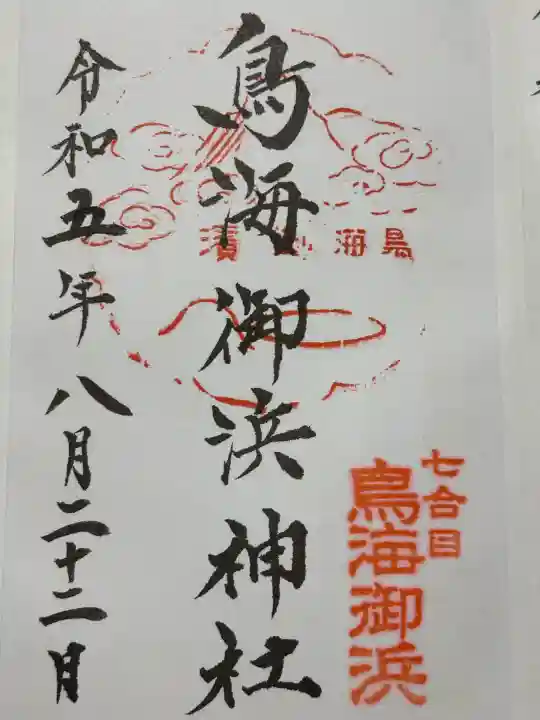 鳥海御浜神社
令和五年八月二十二日
七合目
鳥海御浜